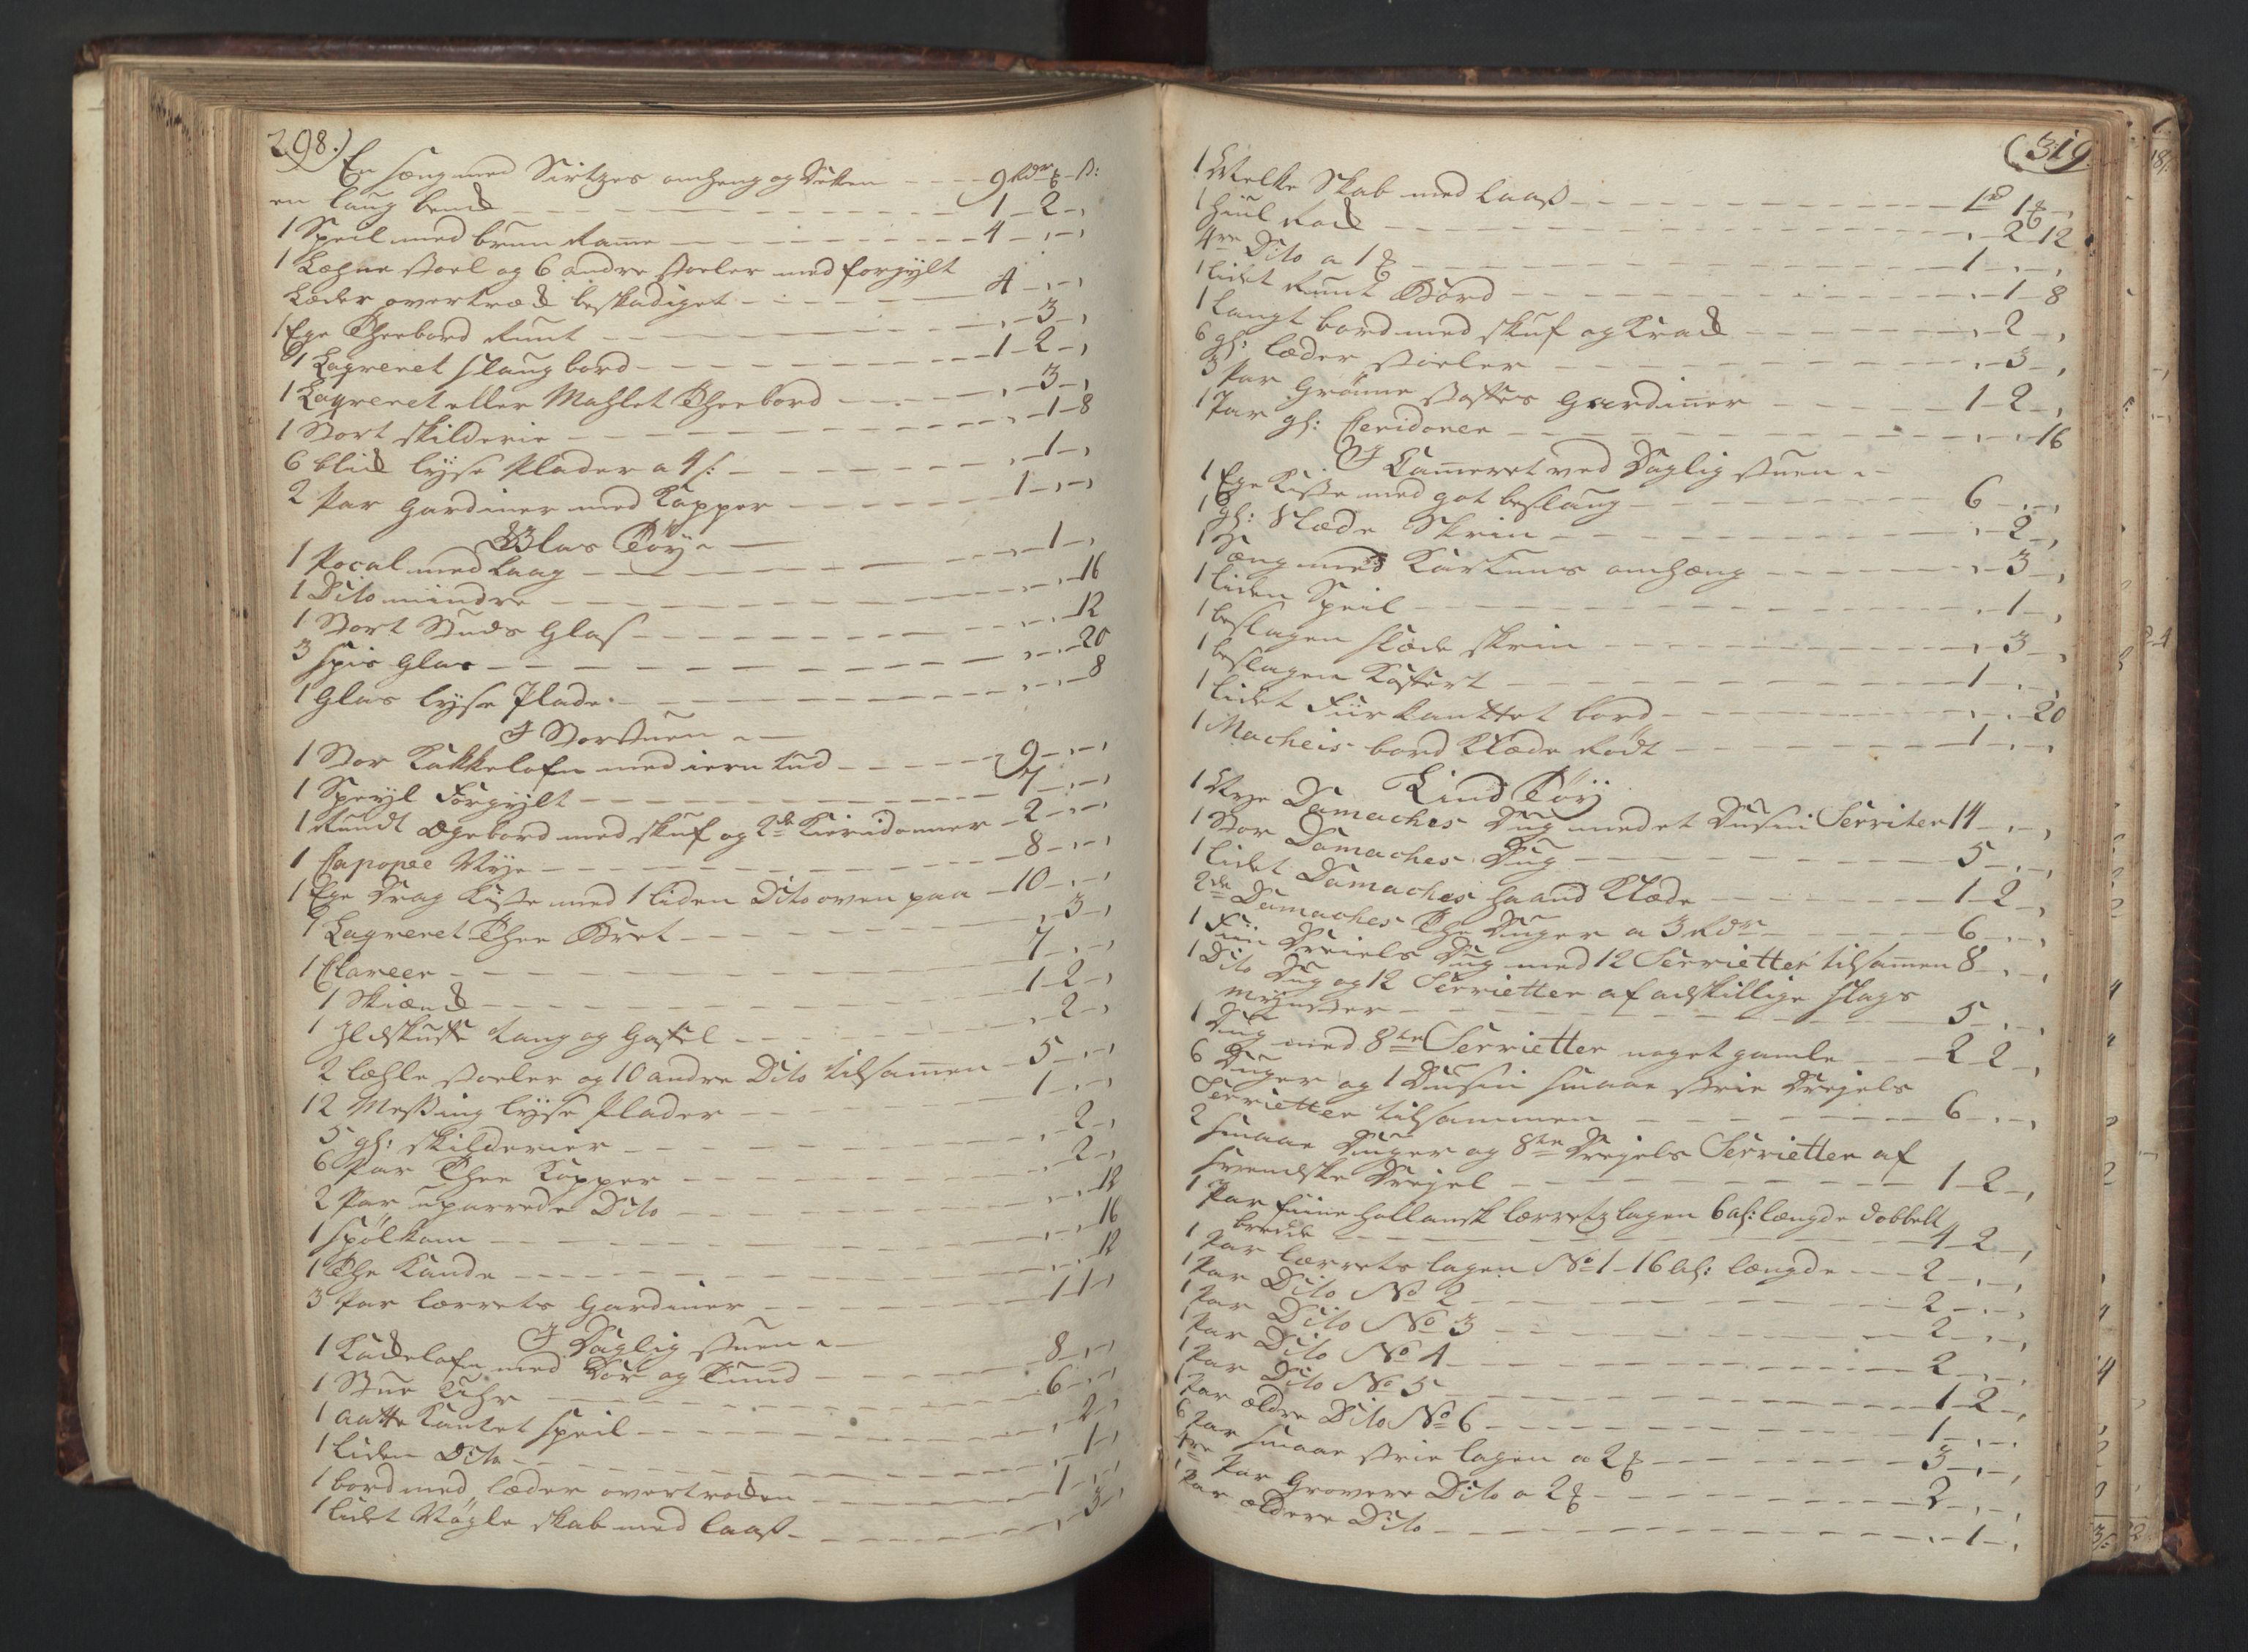 298.)
En sæng med Sirtzes omheng og Dekken - - - 9 Rdr ₰ - ß:
en laug bend - - - 1 - 2 - ,
1 Speil med brun Rame - - - 4 - , - ,
1 Læhne stoel og 6 andre stoeler med forgylt
Læder overtræk beskadiget - - - 4 - , - ,
1 Ege Theebord Runt - - - , - 3 - ,
1 Laqveret slaug bord - - - 1 - 2 - ,
1 Laqveret eller Mahlet Theebord - - - , - 3 - ,
1 Stort skilderie - - - , - 1 - 8
6 blik lyse Plader a 4 ß: - - - , - 1 - ,
2 Par Gardiner med Kapper - - - 1 - , - ,
Glas Töy
1 Pocal med Laag - - - , - 1 - ,
1 Dito mindre - - - , - , - 16
1 Stort Glas - - - , - , - 12
3 spis Glas - - - , - , - 20
1 Glas lyse Plade - - - , - , - 8
I Storstuen
1 Stor Kakkelofn med iern - - - 9 - , - ,
1 Speyl Forgylt - - - 7 - , - ,
1 Rundt Egebord med skuf og 2de Kieridonner - 2 - , - ,
1 Capopee Nye - - - 8 - , - ,
1 Ege Drag Kiste med 1 liden Dito oven paa - 10 - , - ,
1 Laqveret Thee Bret - - - , - 3 - ,
1 Claveer - - - 7 - , - ,
1 Skiænk - - - 1 - 2 - ,
1 Ildskuffe tang og Gaffel - - - , - 2 - ,
2 læhle stoeler og 10 andre Dito tilsamen - 5 - , - ,
12 Messing lyse Plader - - - 1 - , - ,
5 gl: skilderier - - - , - 2 - ,
6 Par Thee Kopper - - - , - 2 - ,
2 Par uparrede Dito - - - , - , - 12
1 spölkom - - - , - , - 16
1 The Kande - - - , - , - 12
3 Par lærrets Gardiner - - - 1 - 1 - ,
I Daglig stuen
1 Kakelofn med Dör og - - - 8 - , - ,
1 Stue Uhr - - - 6 - , - ,
1 aatte Kantet speil - - - , - 2 - ,
1 liden Dito - - - , - 1 - ,
1 bord med læder overtroken - - - 1 - , - ,
1 lidet Nögle skab med laas - - - , - 3 - ,
(319.
1 Melke Skab med laas - - - 1 Rd 1 ₰ - ,
1 Hiul Rok - - - , - 2 - 12
4re Dito a 1 ₰ - - - 1 - , - ,
1 lidet Runt Bord - - - , - 1 - 8
1 langt bord med skuf og - - - , - 2 - ,
6 gl: læder stoeler - - - , - 3 - ,
3 Par Grönne stoffes Gardiner - - - 1 - 2 - ,
1 Par gl: Ceridoner - - - , - , - 16
I Cameret ved Daglig stuen
1 Ege Kiste med got beslaug - - - 6 - , - ,
1 gl: Slæde Skrin - - - , - 2 - ,
1 Sæng med Kartuns omhæng - - - , - 3 - ,
1 liden Speil - - - , - 1 - ,
1 beslagen slæde skrin - - - , - 3 - ,
1 beslagen Koffert - - - 1 - , - ,
1 lidet Fiirkanttet bord - - - , - , - 20
1 Macheis bord Klæde Rödt - - - 1 - , - ,
Lind Töy
1 Nye Damaches Dug med et Dusin Serviter 14 - , - ,
1 Stor Damaches Dug - - - 5 - , - ,
1 lidet Damaches haand Klæde - - - 1 - 2 - ,
2de Damaches The Duger a 3 Rdr - - - 6 - , - ,
1 Fiin Dreiels Dug med 12 Servietter tilsamen 8 - , - ,
1 Dito Dug og 12 Servietter af adskillige slags
mynster - - - 5 - , - ,
1 Dug med 8te Servietter noget gamle - - 2 - 2 - ,
6 Duger og 1 Dusin smaae strie Drejels
Servietter tilsammen - - - 6 - , - ,
2 smaae Duger og 8te Drejels Servietter af
svendske Drejel - - - 1 - 2 - ,
1 Par fiine hollansk lærretz lagen 6 al: længde dobbelt
brede - - - 4 - 2 - ,
1 Par lærrets lagen No 1 - 16 al: længde - - 2 - , - ,
1 Par Dito No 2 - - - 2 - , - ,
1 Par Dito No 3 - - - 2 - , - ,
1 Par Dito No 4 - - - 2 - , - ,
1 Par Dito No 5 - - - 1 - 2 - ,
1 Par ældre Dito No 6 - - - 1 - , - ,
6 Par smaae strie lagen a 2 ₰ - - - 3 - , - ,
4re Par Grovere Dito a 2 ₰ - - - 2 - , - ,
1 Par ældere Dito - - - , - 1 - ,